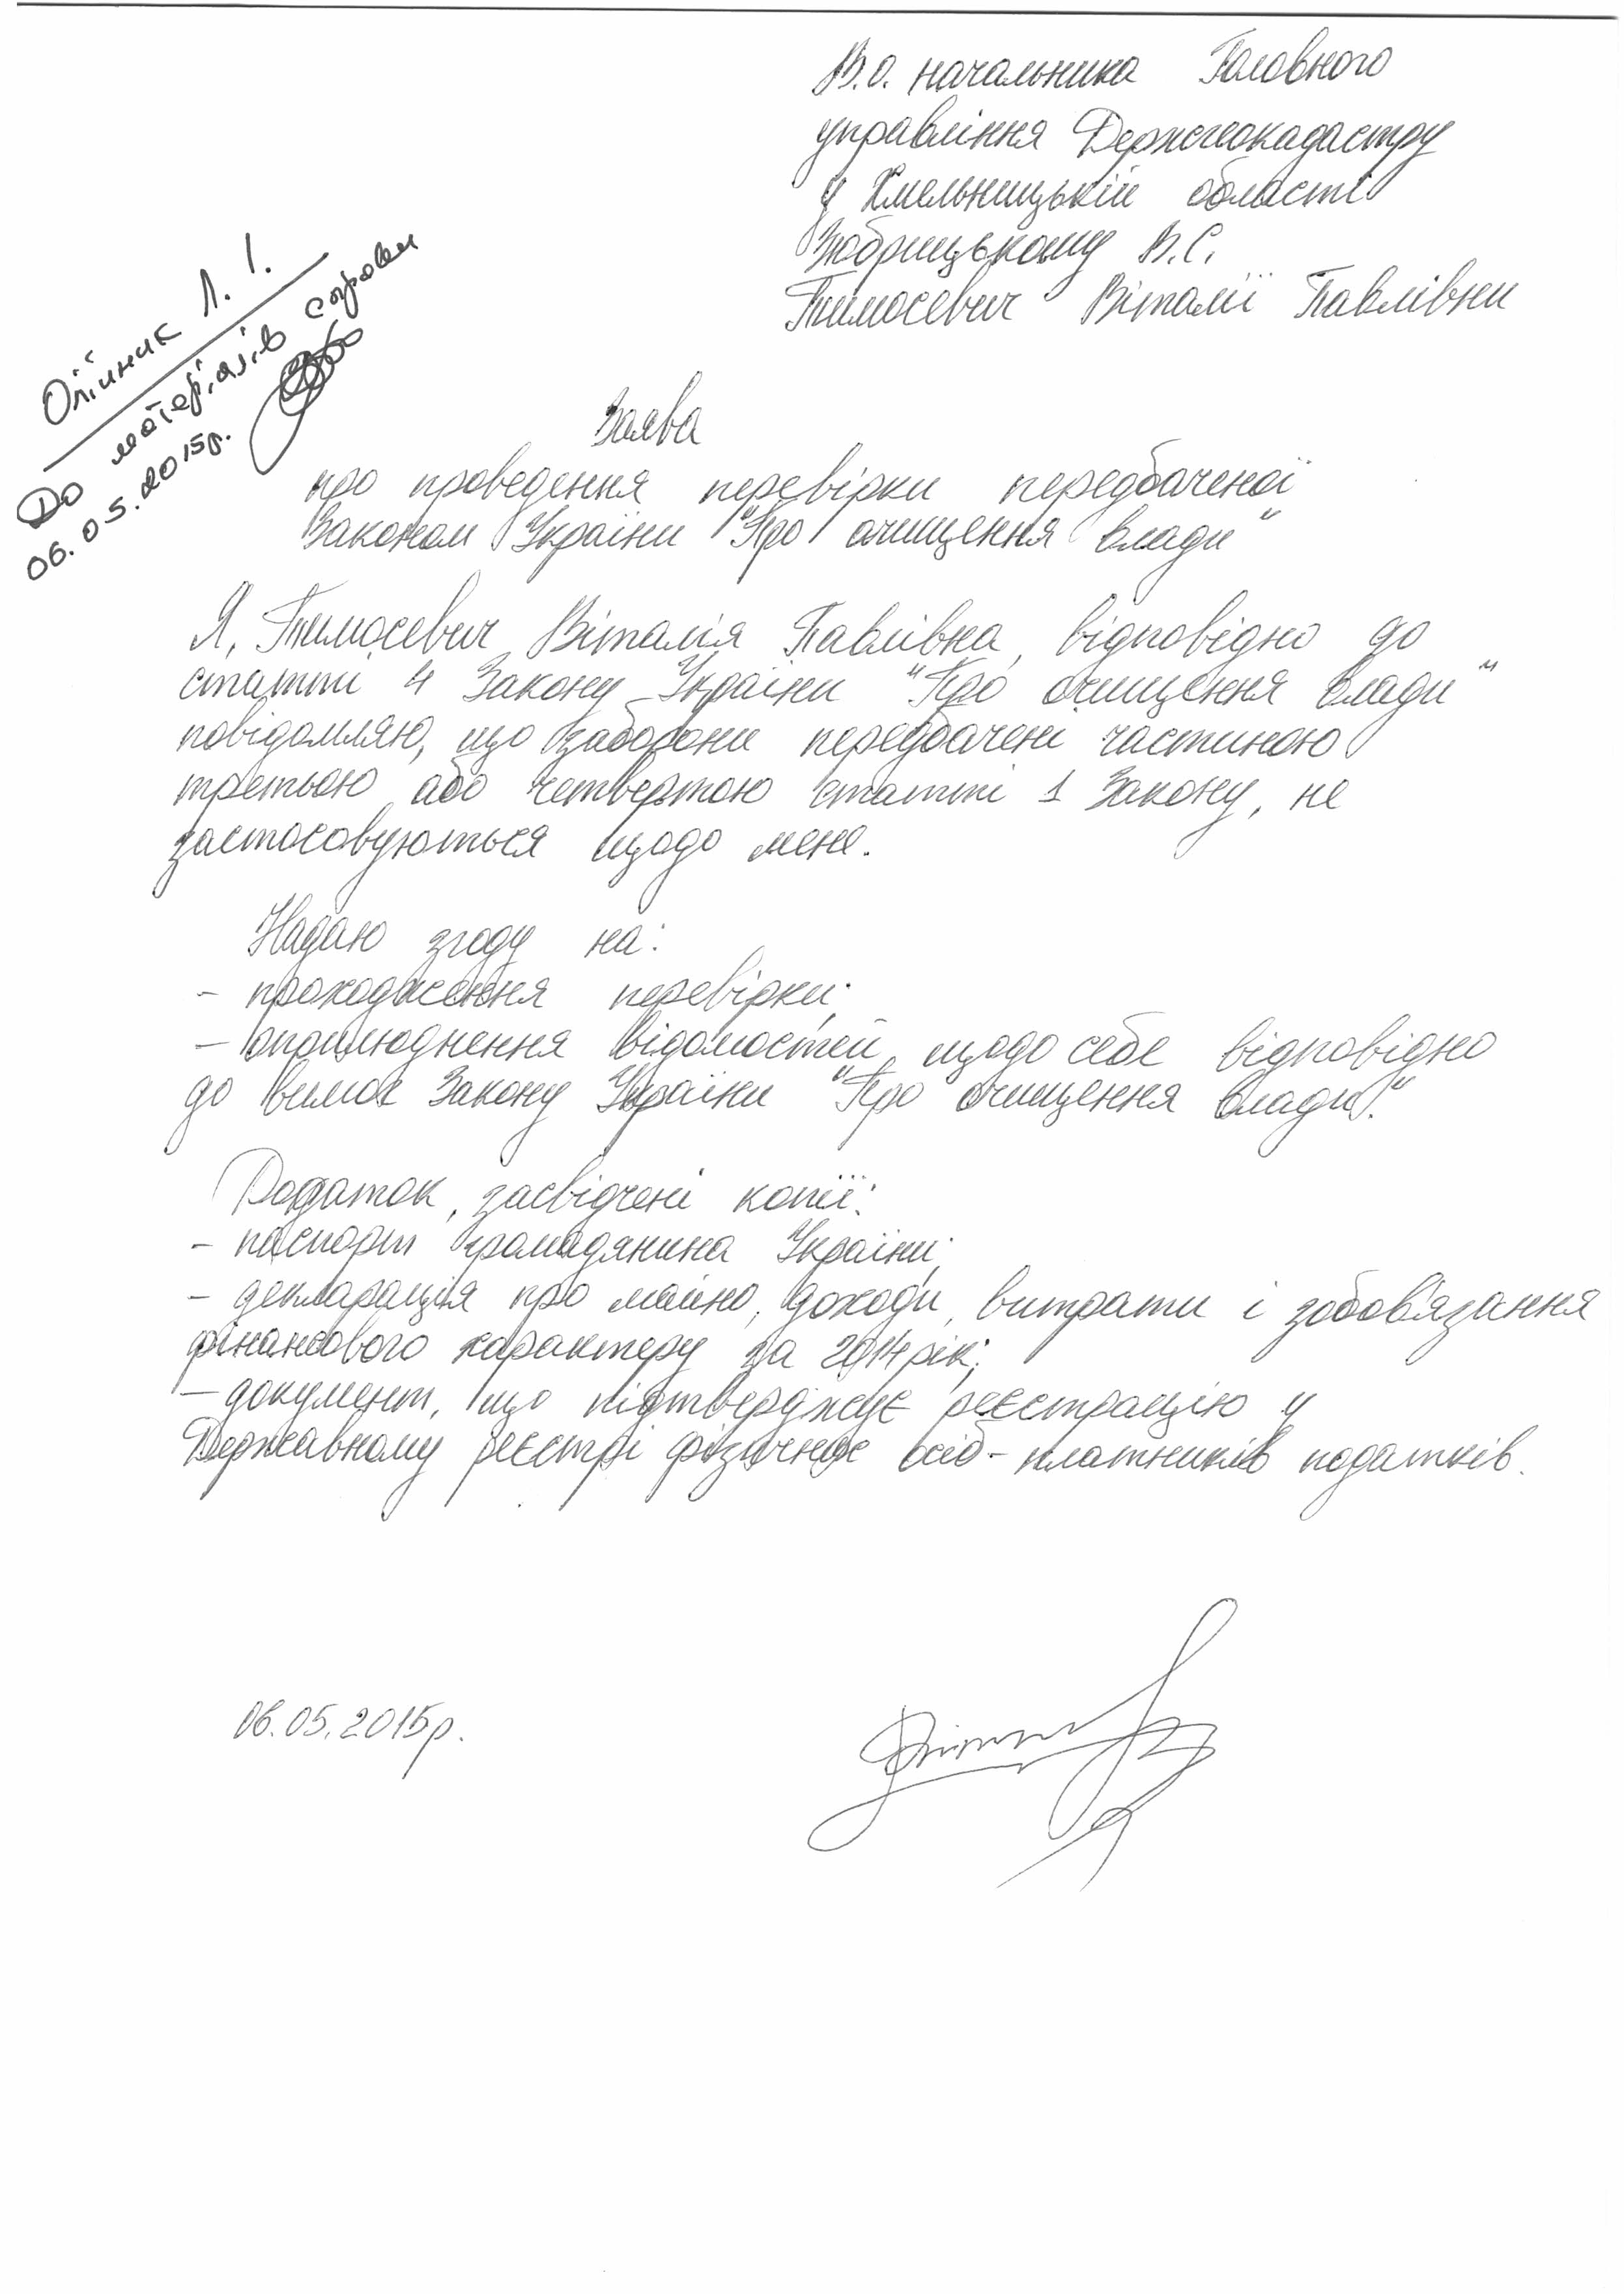 В.о. начальника Головного
управління Держгеокадастру
у Хмельницькій області
В.С.
Тимосевич Віталії Павлівни
Олійник Л. І.
До матеріалів справи
06.05.2015р.
Заява
про проведення перевірки передбаченої
Законом України "Про очищення влади"
Я, Тимосевич Віталія Павлівна, відповідно до
статті 4 Закону України "Про очищення влади"
повідомляю, що заборони передбачені частиною
третьою або четвертою статті 1 Закону, не
застосовуються щодо мене.
Надаю згоду на:
- проходження перевірки;
- оприлюднення відомостей щодо себе відповідно
до вимог Закону України "Про очищення влади".
Додаток, засвідчені копії:
- паспорт громадянина України;
- декларація про майно, доходи, витрати і зобов'язання
фінансового характеру за 2014 рік;
- документ, що підтверджує реєстрацію у
Державному реєстрі фізичних осіб - платників податків.
06.05.2015р.